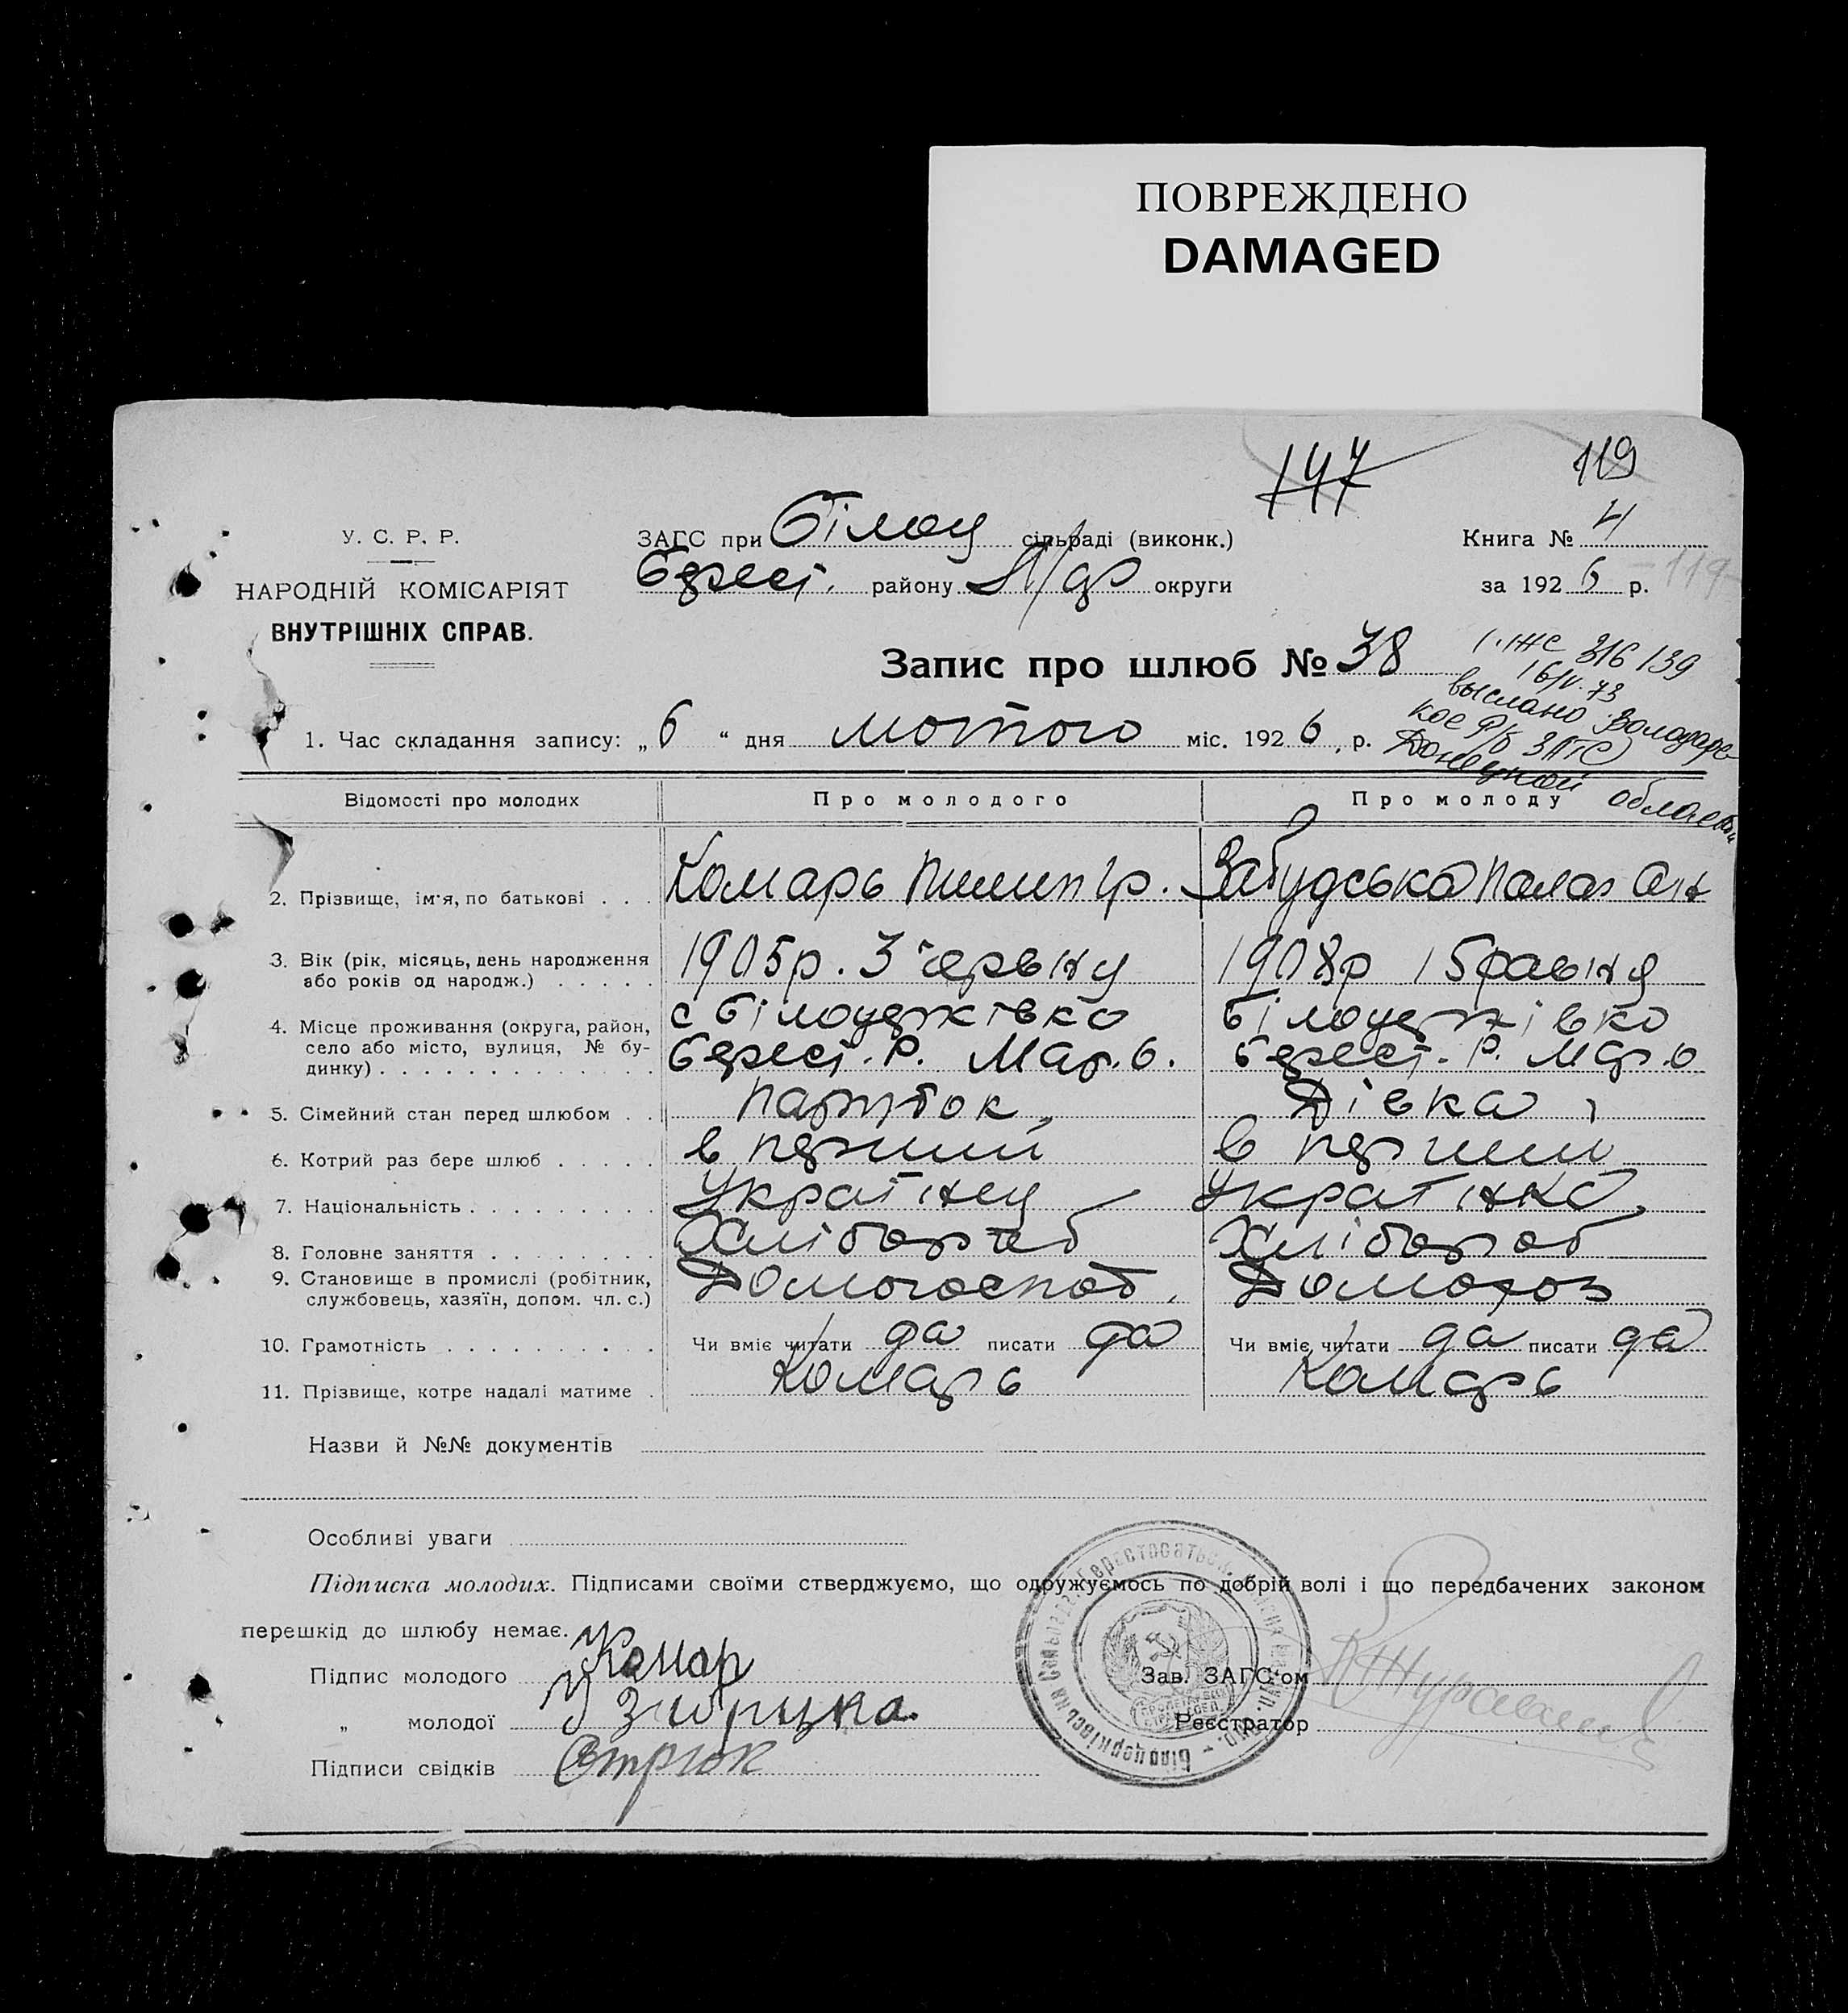 ПОВРЕЖДЕНО
DAMAGED
147
119
У. С. Р. Р.
НАРОДНІЙ КОМІСАРІЯТ
ВНУТРІШНІХ СПРАВ.
ЗАГС при Білоц сільраді (виконк.)
Берест. району М/др округи
Книга № 4
за 1926 р.
-119-
Запис про шлюб № 38
316139
16/V. 73
выслано Володарс-
кое р/б ЗАГС
Донецкой области
1. Час складання запису: „6“ дня лютого міс. 1926, р.
Відомості про молодих
Про молодого
Про молоду
2. Прізвище, ім'я, по батькові . . . Комарь Пилип Гр. Забудська Палаг
3. Вік (рік, місяць, день народження або років од народж.) . . . . . 1905р. 3 червіну 1908р 15 равіну
4. Місце проживання (округа, район, село або місто, вулиця, № будинку) . . . . . . . . . . . . . с Білоцерківка Берест. Р. Мар.о. Білоцерківка Берест. Р. Мар.о
5. Сімейний стан перед шлюбом . . Парубок, Дівка,
6. Котрий раз бере шлюб . . . . . в перший в перший
7. Національність . . . . . . . . . Українец Українка
8. Головне заняття . . . . . . . . Хлібороб Хлібороб
9. Становище в промислі (робітник, службовець, хазяїн, допом. чл. с.) Домогоспод. Домогоз
10. Грамотність . . . . . . . . . . Чи вміє читати да писати да Чи вміє читати да писати да
11. Прізвище, котре надалі матиме . Комарь Комарь
Назви й №№ документів
Особливі уваги
Підписка молодих. Підписами своїми стверджуємо, що одружуємось по добрій волі і що передбачених законом
перешкід до шлюбу немає.
Підпис молодого Комар
„ молодої
Підписи свідків
Зав. ЗАГС'ом
Реєстратор